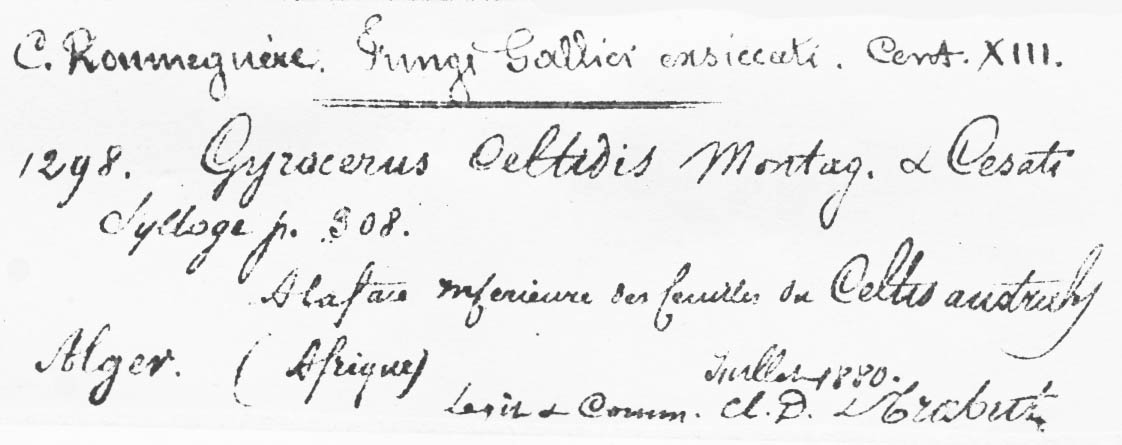 C. Roumeguère. Fungi Gallici exsiccati. Cent. XIII.
1298. Gyrocerus Celtidis Montag. & Cesati
Sylloge p. 308.
A la face inferieure des feuilles du Celtis australis
Alger. (Afrique)
Juillet 1880.
Legit & Comm. Cl. D. Trabut